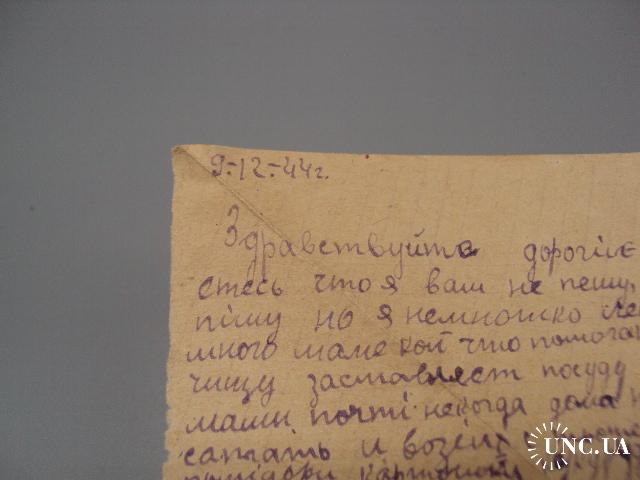 9-12-44г.
Здравствуйте дорогіе
етесь что я вам не пешу,
пішу но я немношко
много маме кой что помога
чищу заставляет посуду
маши почті некогда дома
сапать и возит
картошку
UNC.UA